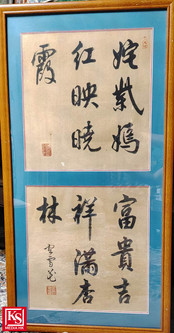 姹紫嫣
红映晓
霞
富貴吉
祥满杏
林
KS